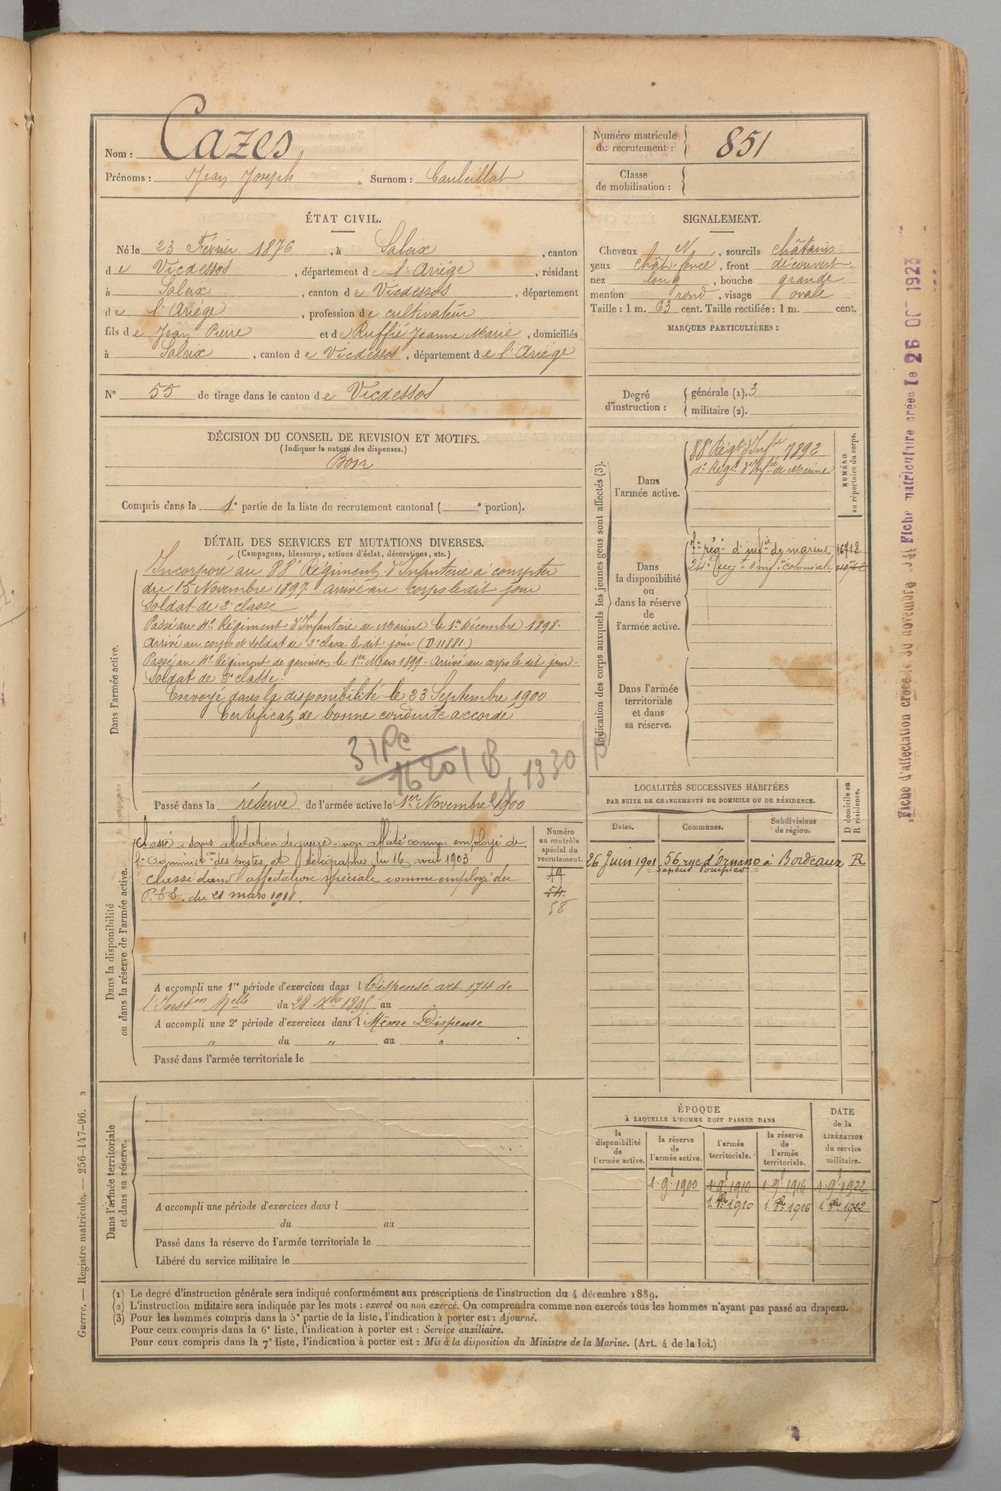 Nom : Cazes
Prénoms : Jean Joseph Surnom :
Numéro matricule du recrutement : 851
Classe de mobilisation :
ÉTAT CIVIL.
Né le 23 Février 1876, à Saleix, canton
de Vicdessos, département de l'Ariège, résidant
à Saleix, canton de Vicdessos, département
de l'Ariège, profession de cultivateur
fils de Jean Pierre et de Ruffié Jeanne Marie, domiciliés
à Saleix, canton de Vicdessos, département de l'Ariège
N° 55 de tirage dans le canton de Vicdessos
SIGNALEMENT.
Cheveux N, sourcils châtains
yeux chât. foncé, front découvert
nez long, bouche grande
menton rond, visage ovale
Taille : 1 m. 63 cent. Taille rectifiée : 1 m. cent.
MARQUES PARTICULIÈRES :
Degré d'instruction : générale (1). 3
militaire (2).
DÉCISION DU CONSEIL DE REVISION ET MOTIFS.
(Indiquer la nature des dispenses.)
Bon
Compris dans la 1e partie de la liste du recrutement cantonal ( e portion).
DÉTAIL DES SERVICES ET MUTATIONS DIVERSES.
(Campagnes, blessures, actions d'éclat, décorations, etc.)
Dans l'armée active.
Incorporé au 88e Régiment d'Infanterie à compter
du 15 Novembre 1897 arrivé au corps le dit jour
Soldat de 2e classe
Passé au 4e Régiment d'Infanterie de Marine le 1er Décembre 1898.
Arrivé au corps et soldat de 2e classe le dit jour (D 11881)
Passé au 4e Régiment de garnison le 1er Mars 1899. Arrivé au corps le dit jour.
Soldat de 2e classe.
Envoyé dans la disponibilité le 23 Septembre 1900
Certificat de bonne conduite accordé
Passé dans la réserve de l'armée active le 1er Novembre 1900
Indication des corps auxquels les jeunes gens sont affectés (3).
Dans l'armée active.
88e Régt d'Infie 7892
NUMÉRO au répertoire du corps.
Dans la disponibilité ou dans la réserve de l'armée active.
7e rég. d'infie de marine
Dans l'armée territoriale et dans sa réserve.
LOCALITÉS SUCCESSIVES HABITÉES
PAR SUITE DE CHANGEMENTS DE DOMICILE OU DE RÉSIDENCE.
Dates. Communes. Subdivisions de région. D domicile ou R résidence.
26 Juin 1901 56, rue d'Ornano à Bordeaux R
Sapeur Pompier
Dans la disponibilité ou dans la réserve de l'armée active.
Numéro au contrôle spécial du recrutement.
Classé sans affectation de guerre - non affecté comme employé de
l'Admin. des postes et télégraphes du 16 mai 1903
Classé dans l'affectation spéciale comme employé des
P.T.T. du 21 mars
58
A accompli une 1re période d'exercices dans Dispensé art. 174 de
l'Inston Melle du 28 Xbre 1895 au
A accompli une 2e période d'exercices dans Même Dispense
" du " au "
Passé dans l'armée territoriale le
Dans l'armée territoriale et dans sa réserve.
A accompli une période d'exercices dans l
du au
Passé dans la réserve de l'armée territoriale le
Libéré du service militaire le
ÉPOQUE
À LAQUELLE L'HOMME DOIT PASSER DANS
la disponibilité de l'armée active. la réserve de l'armée active. l'armée territoriale. la réserve de l'armée territoriale. DATE de la LIBÉRATION du service militaire.
1 9bre 1900 1 9bre 1910 1 9bre 1916 1 9bre 1922
(1) Le degré d'instruction générale sera indiqué conformément aux prescriptions de l'instruction du 4 décembre 1889.
(2) L'instruction militaire sera indiquée par les mots : exercé ou non exercé. On comprendra comme non exercés tous les hommes n'ayant pas passé au drapeau.
(3) Pour les hommes compris dans la 5e partie de la liste, l'indication à porter est : Ajourné.
Pour ceux compris dans la 6e liste, l'indication à porter est : Service auxiliaire.
Pour ceux compris dans la 7e liste, l'indication à porter est : Mis à la disposition du Ministre de la Marine. (Art. 4 de la loi.)
Guerre. — Registre matricule. — 256-147-96. 2
Fiche matriculaire créée le 26 OCT 1923